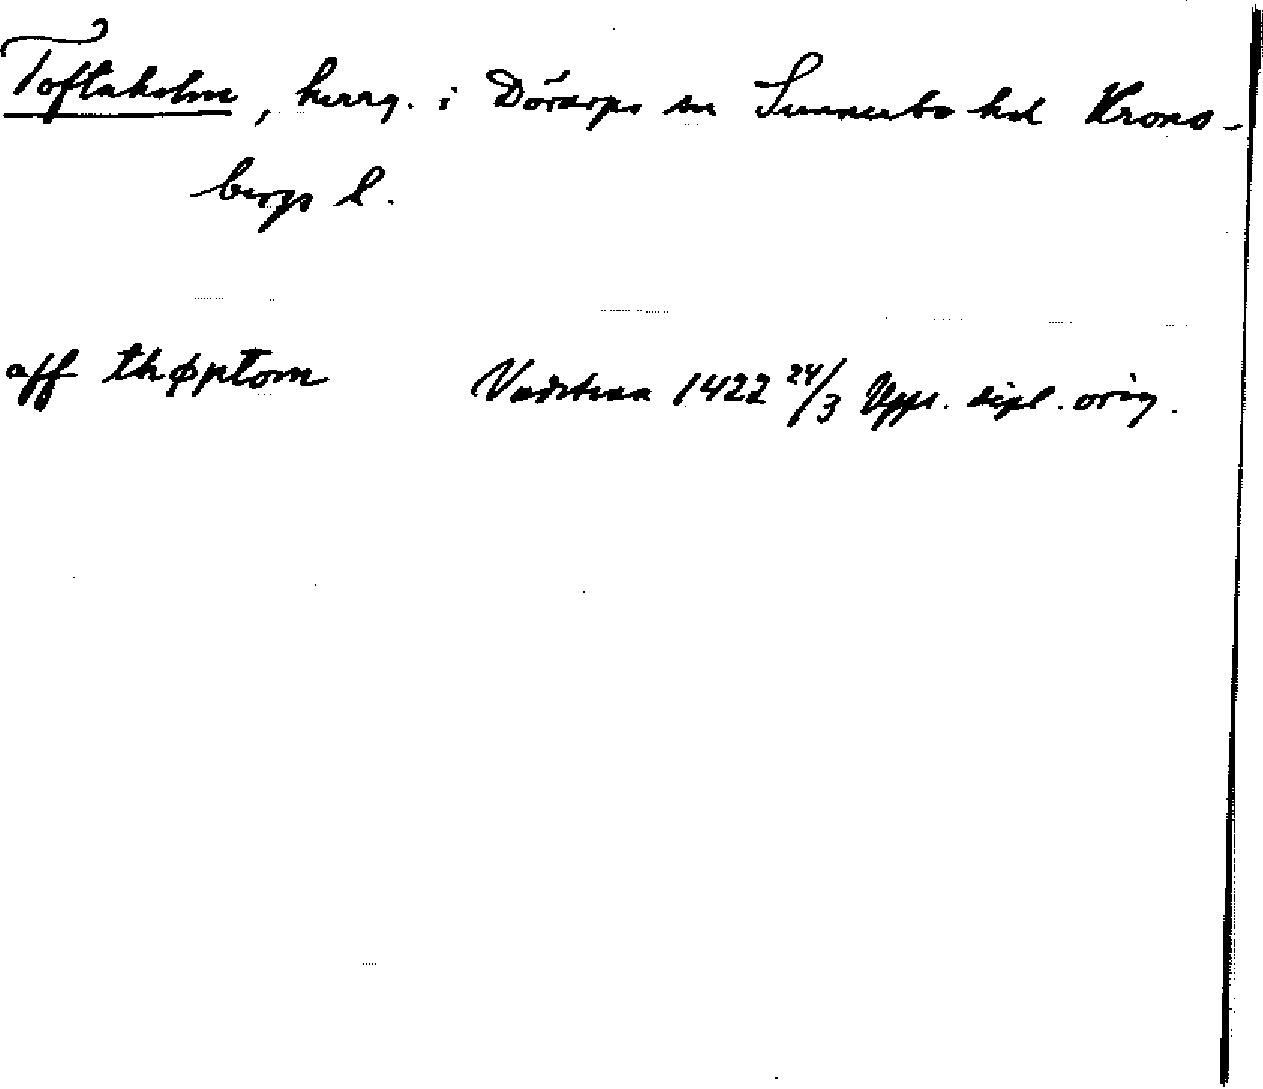 Toftaholm, herrg. i Dörarps sn Sunnerbo hd Krono-
bergs l.
aff thøptom Vadstena 1422 24/3 Uppl. dipl. orig.